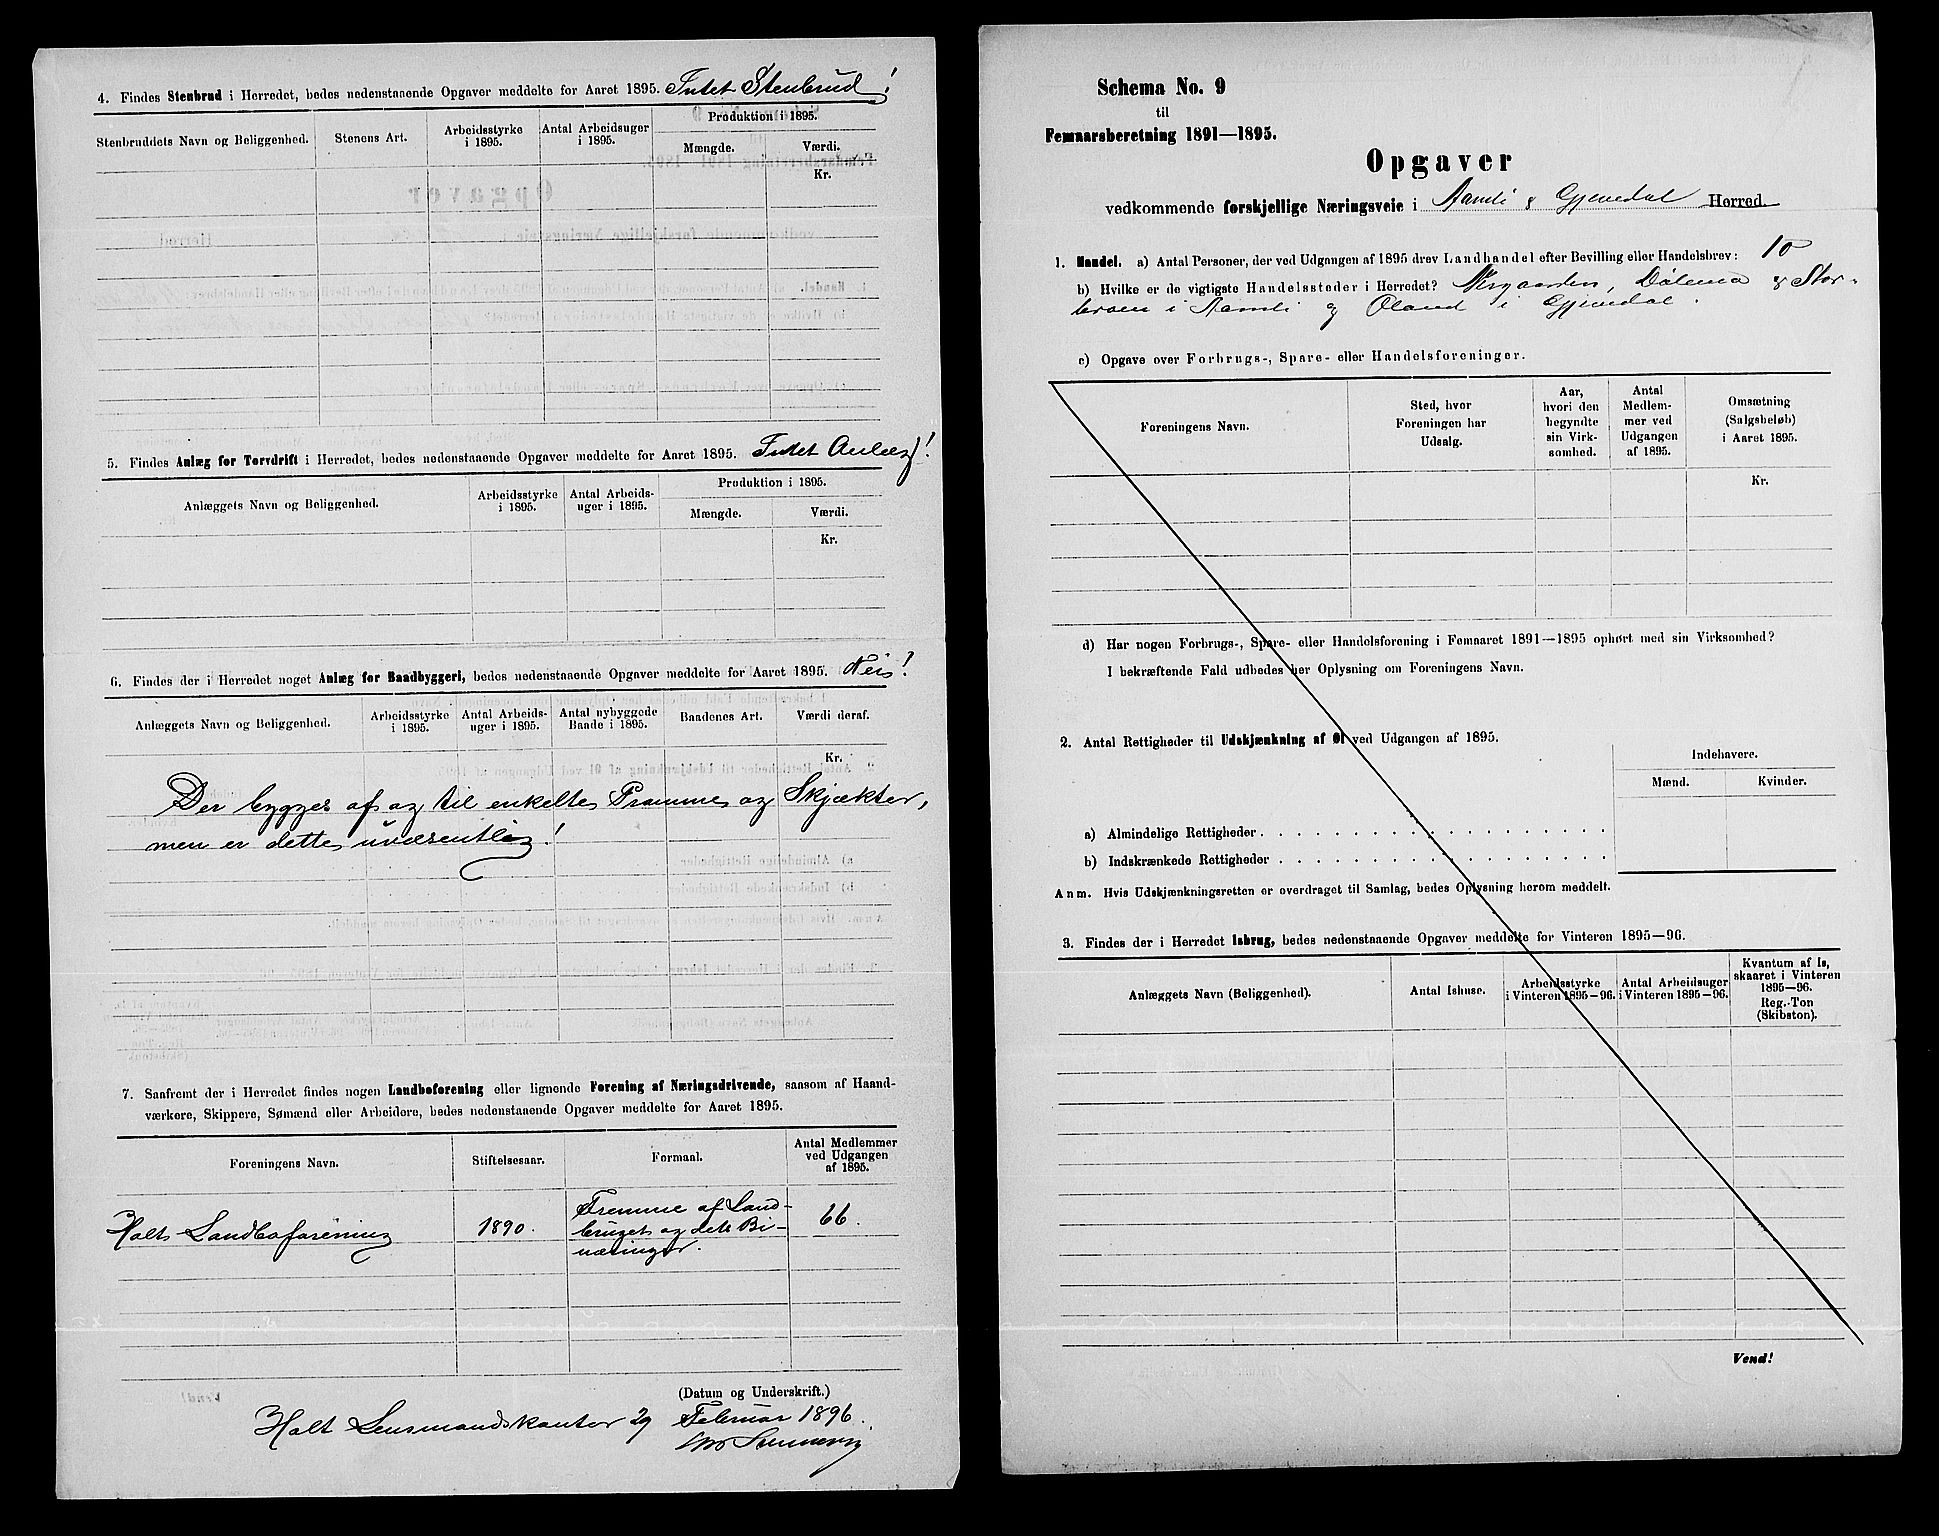 4. Findes Stenbrud i Herredet, bedes nedenstaaende Opgaver meddelte for Aaret 1895. Intet Stenbrud!
Stenbruddets Navn og Beliggenhed.
Stenens Art.
Arbeidsstyrke
i 1895.
Antal Arbeidsuger
i 1895.
Produktion i 1895.
Mængde.
Værdi.
Kr.
5. Findes Anlæg for Torvdrift i Herredet, bedes nedenstaaende Opgaver meddelte for Aaret 1895. Intet Anlæg!
Anlæggets Navn og Beliggenhed.
Arbeidsstyrke
i 1895.
Antal Arbeids-
uger i 1895.
Produktion i 1895.
Mængde.
Værdi.
Kr.
6. Findes der i Herredet noget Anlæg for Baadbyggeri, bedes nedenstaaende Opgaver meddelte for Aaret 1895. Nei!
Anlæggets Navn og Beliggenhed.
Arbeidsstyrke
i 1895.
Antal Arbeids-
uger i 1895.
Antal nybyggede
Baade i 1895.
Baadenes Art.
Værdi deraf.
Kr.
Der bygges af og til enkelte Pramme og Skjækter,
men er dette uvæsentlig!
7. Saafremt der i Herredet findes nogen Landboforening eller lignende Forening af Næringsdrivende, saasom af Haand-
værkere, Skippere, Sømænd eller Arbeidere, bedes nedenstaaende Opgaver meddelte for Aaret 1895.
Foreningens Navn.
Stiftelsesaar.
Formaal.
Antal Medlemmer
ved Udgangen
af 1895.
Holts Landboforening
1890.
Fremme af Land-
bruget og dets Bi-
næringer.
66.
(Datum og Underskrift.)
Holt Lensmandskontor 29 Februar 1896.
Schema No. 9
til
Femaarsberetning 1891—1895.
Opgaver
vedkommende forskjellige Næringsveie i Aamli & Gjevedal Herred.
1. Handel. a) Antal Personer, der ved Udgangen af 1895 drev Landhandel efter Bevilling eller Handelsbrev: 10
b) Hvilke er de vigtigste Handelssteder i Herredet? Nesgaarden, Dølemo & Stor-
broen i Aamli og Øland i Gjevedal.
c) Opgave over Forbrugs-, Spare- eller Handelsforeninger.
Foreningens Navn.
Sted, hvor
Foreningen har
Udsalg.
Aar,
hvori den
begyndte
sin Virk-
somhed.
Antal
Medlem-
mer ved
Udgangen
af 1895.
Omsætning
(Salgsbeløb)
i Aaret 1895.
Kr.
d) Har nogen Forbrugs-, Spare- eller Handelsforening i Femaaret 1891—1895 ophørt med sin Virksomhed?
I bekræftende Fald udbedes her Oplysning om Foreningens Navn.
2. Antal Rettigheder til Udskjænkning af Øl ved Udgangen af 1895.
Indehavere.
Mænd.
Kvinder.
a) Almindelige Rettigheder . . . . . . . . . . . . . . . . . . . .
b) Indskrænkede Rettigheder . . . . . . . . . . . . . . . . . . .
Anm. Hvis Udskjænkningsretten er overdraget til Samlag, bedes Oplysning herom meddelt.
3. Findes der i Herredet Isbrug, bedes nedenstaaende Opgaver meddelte for Vinteren 1895—96.
Anlæggets Navn (Beliggenhed).
Antal Ishuse.
Arbeidsstyrke
i Vinteren 1895—96.
Antal Arbeidsuger
i Vinteren 1895—96.
Kvantum af Is,
skaaret i Vinteren
1895—96.
Reg.-Ton
(Skibston).
Vend!